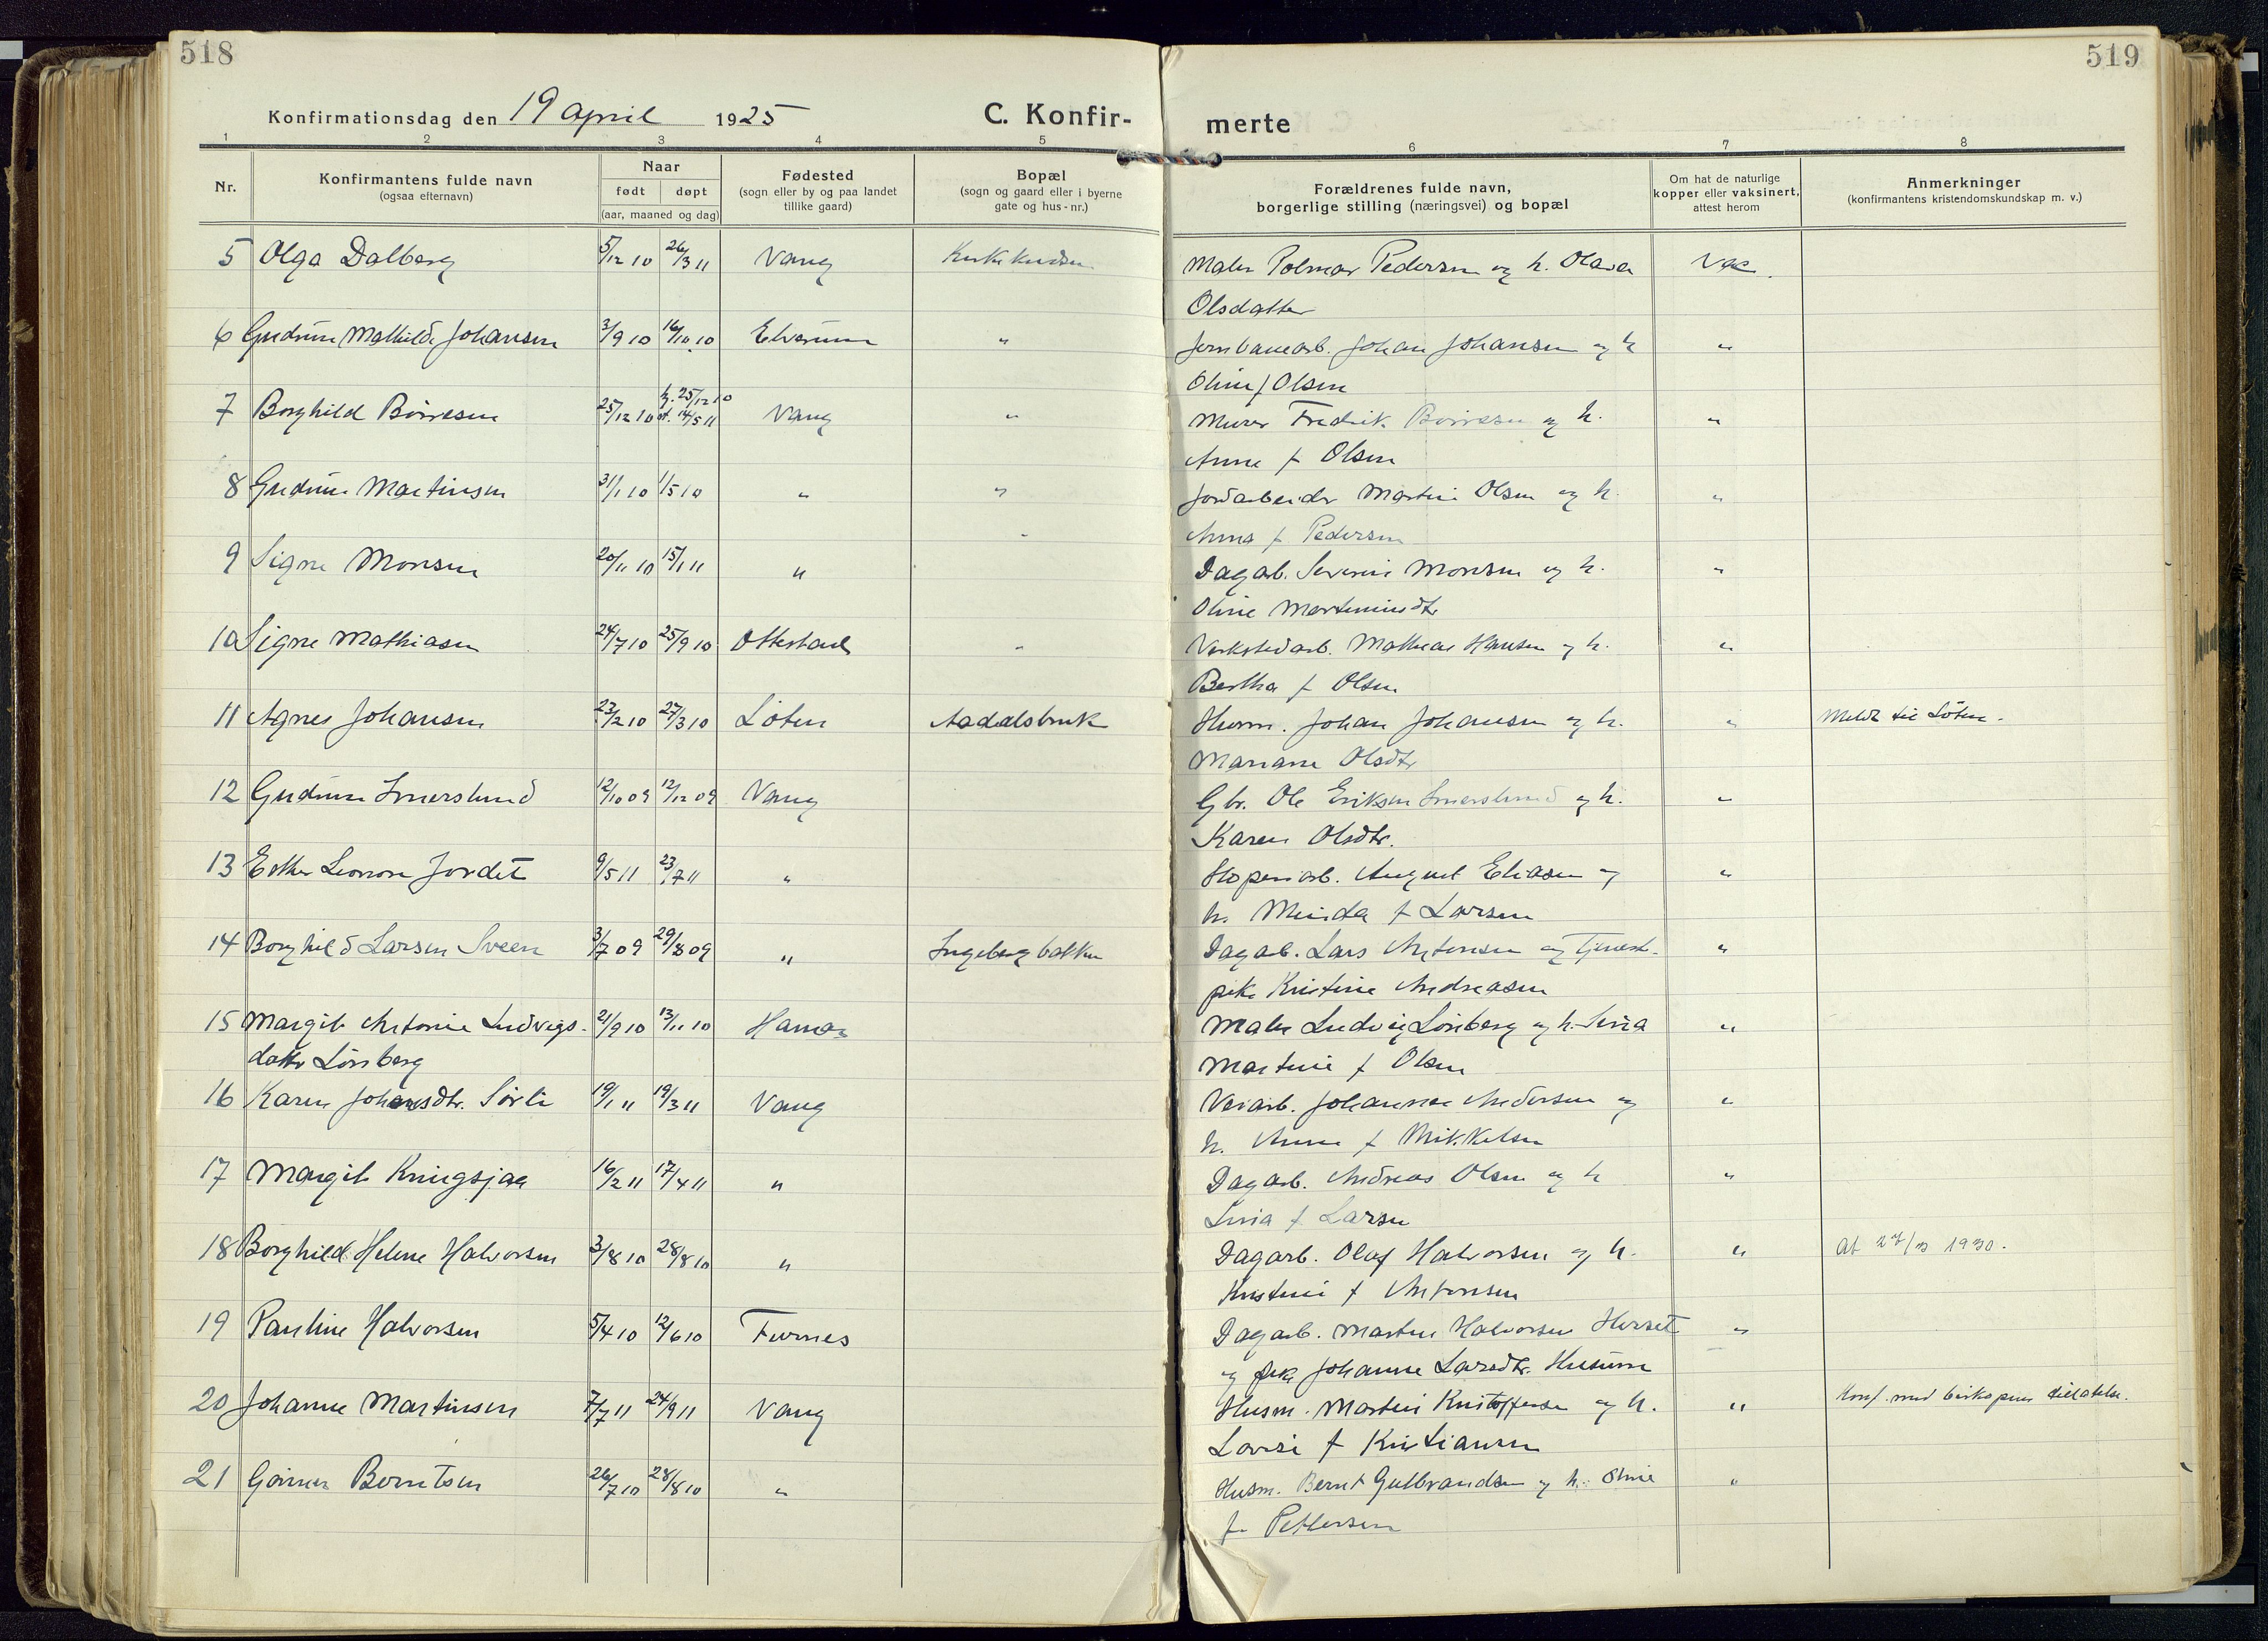 518
519
Konfirmationsdag den 19 april 1925
C. Konfir-
merte
1 2 3 4 5 6 7 8
Nr.
Konfirmantens fulde navn
(ogsaa efternavn)
Naar
født døpt
(aar, maaned og dag)
Fødested
(sogn eller by og paa landet
tillike gaard)
Bopæl
(sogn og gaard eller i byerne
gate og hus-nr.)
Forældrenes fulde navn,
borgerlige stilling (næringsvei) og bopæl
Om hat de naturlige
kopper eller vaksinert,
attest herom
Anmerkninger
(konfirmantens kristendomskundskap m. v.)
5 Olga Dalberg 5/12 10 26/3 11 Vang Maler Polmar Pedersen og h. Olava Vac.
Olsdatter
6 Gudrun Mathilde Johansen 3/9 10 16/10 10 Elverum " Jernbanearb. Johan Johansen og h "
Oline f Olsen
7 Borghild Børresen 25/12 10 hj. 25/12 10 st. 14/5 11 Vang " Murer Fredrik Børresen og h. "
Anne f Olsen
8 Gudrun Martinsen 31/1 10 1/5 10 " " Jordarbeider Martin Olsen og h. "
Anna f Pedersen
9 Signe Monsen 20/11 10 15/1 11 " " Dagarb. Severin Monsen og h. "
Oline Martinusdtr
10 Signe Mathiasen 24/7 10 25/9 10 Ottestad " Verkstedarb. Mathias Hansen og h. "
Bertha f Olsen
11 Agnes Johansen 23/2 10 27/3 10 Løten Aadalsbruk Husm. Johan Johansen og h. " Meldt til Løten.
Mariane Olsdtr
12 Gudrun Imerslund 12/10 09 12/12 09 Vang Gbr. Ole Eriksen Imerslund og h. "
Karen Olsdtr.
13 Esther Leonora Jordet 9/5 11 23/7 11 " Støperiarb. August Eliasen og "
h. Minda f Larsen
14 Borghild Larsen Sveen 3/7 09 29/8 09 " Ingebergbakken Dagarb. Lars Antonsen og Tjeneste-
pike Kristine Andreasen "
15 Margit Antonie Ludvigs- 21/9 10 13/11 10 Hamar Maler Ludvig Lönberg og h. Lina "
datter Lönberg Martine f Olsen
16 Karen Johansdtr. Sørli 19/1 11 19/3 11 Vang Veiarb. Johannes Andersen og "
h. Anne f Mikkelsen
17 Margit Kringsjaa 16/2 11 17/4 11 " Dagarb. Andreas Olsen og h "
Lina f Larsen
18 Borghild Helene Halvorsen 3/8 10 28/8 10 " Dagarb. Olaf Halvorsen og h. " At 27/3 1930.
Kristine f Antonsen
19 Pauline Halvorsen 5/4 10 12/6 10 Furnes Dagarb. Martin Halvorsen Horset "
og pike Johanne Larsdtr. Husum
20 Johanne Martinsen 7/7 11 24/9 11 Vang Husm. Martin Kristoffersen og h. " Konf. med biskopens tillatelse.
Lovise f Kristiansen
21 Gunnar Berntsen 26/7 10 28/8 10 " Husm. Bernt Gulbrandsen og h. Oline "
f. Pettersen